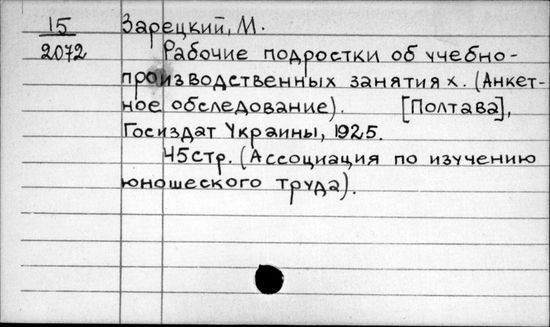 15 Зарецкий, М.
2072 Рабочие подростки об учебно-
производственных занятиях. (Анкет-
ное обследование). [Полтава],
Госиздат Украины, 1925.
45стр. (Ассоциация по изучению
юношеского труда).